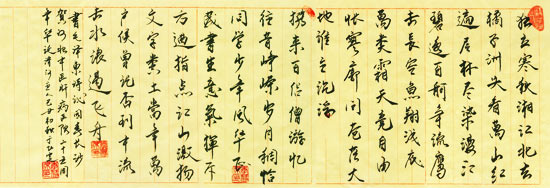 独立寒秋湘江北去
橘子洲头看万山红
遍层林尽染漫江
碧透百舸争流鹰
击长空鱼翔浅底
万类霜天竞自由
怅寥廓问苍茫大
地谁主沉浮
携来百侣曾游忆
往昔峥嵘岁月稠恰
同学少年风华正
茂书生意气挥斥
方遒指点江山激扬
文字粪土当年万
户侯曾记否到中流
击水浪遏飞舟
书毛泽东诗词沁园春长沙